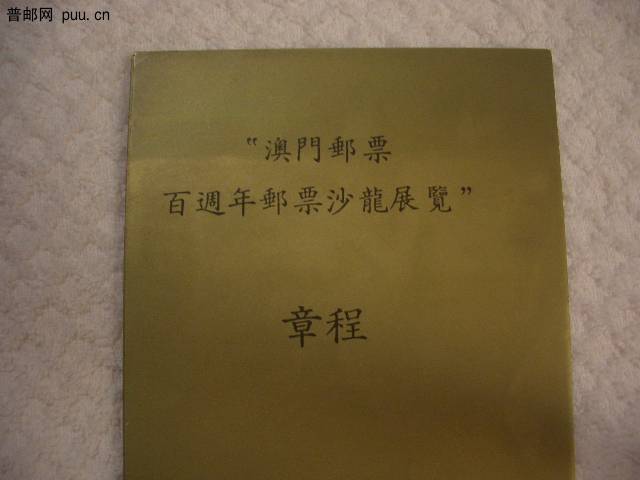 普邮网 puu.cn
“澳門郵票
百週年郵票沙龍展覽”
章程